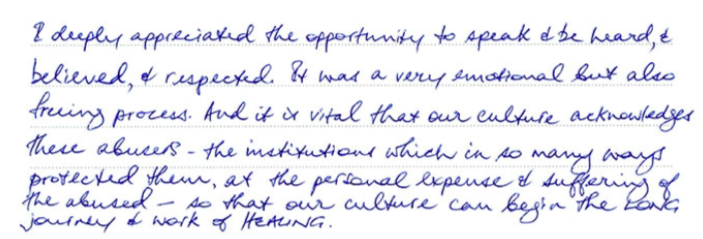 I deeply appreciated the opportunity to speak & be heard, &
believed, & respected. It was a very emotional but also
freeing process. And it is vital that our culture acknowledges
these abusers - the institutions which in so many ways
protected them, at the personal expense & suffering of
the abused - so that our culture can begin the LONG
journey & work of HEALING.